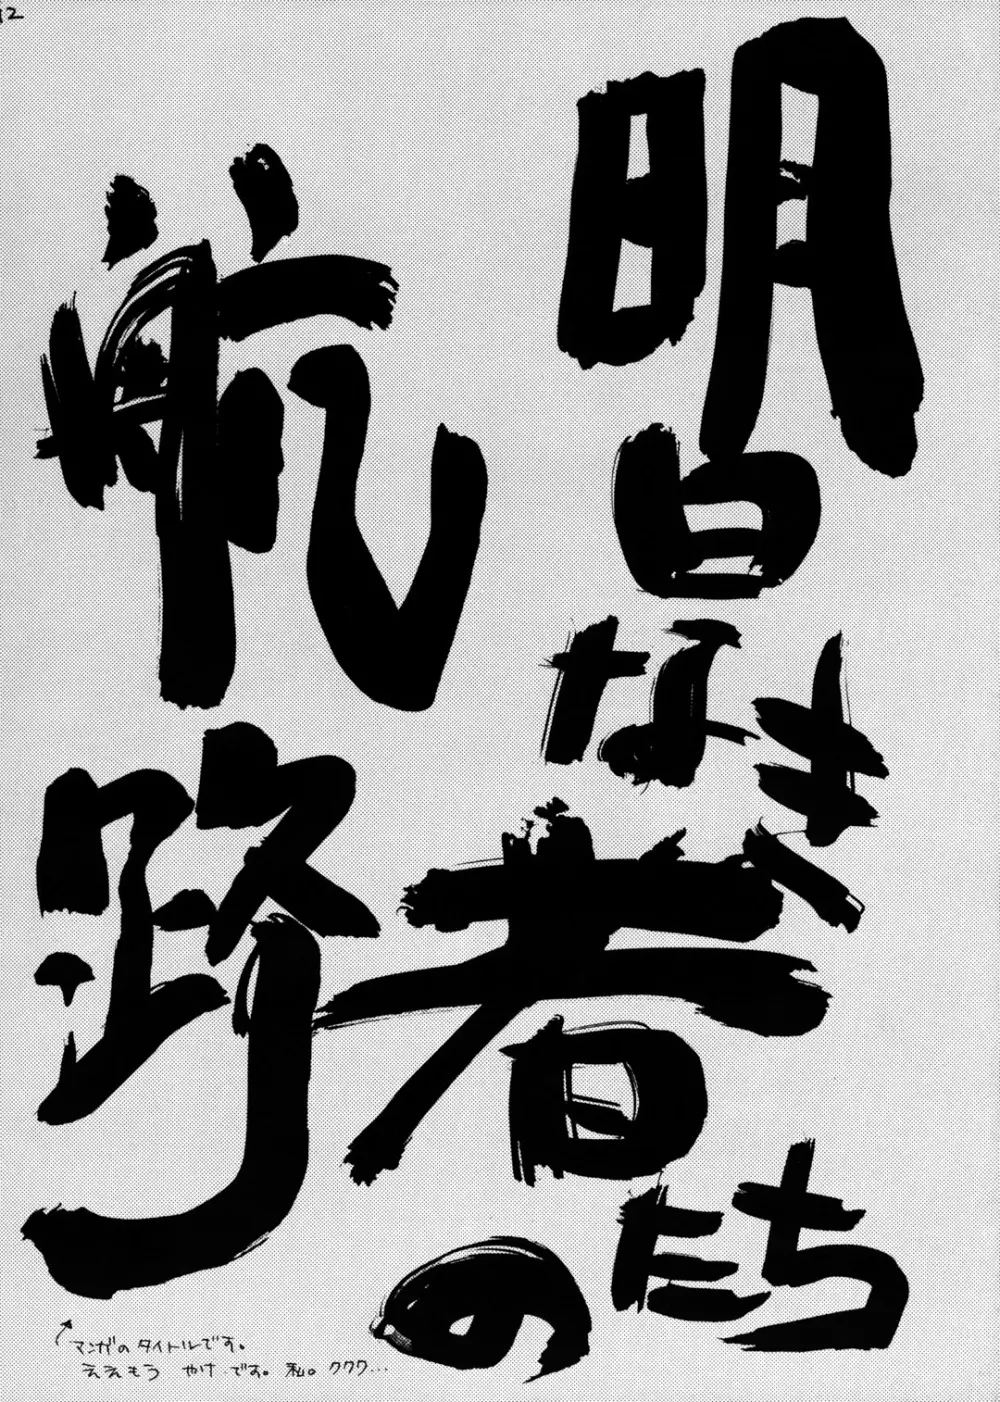 明日なき者たちの
荒野
マンガのタイトルです。
ええもう やけです。私。ククク…